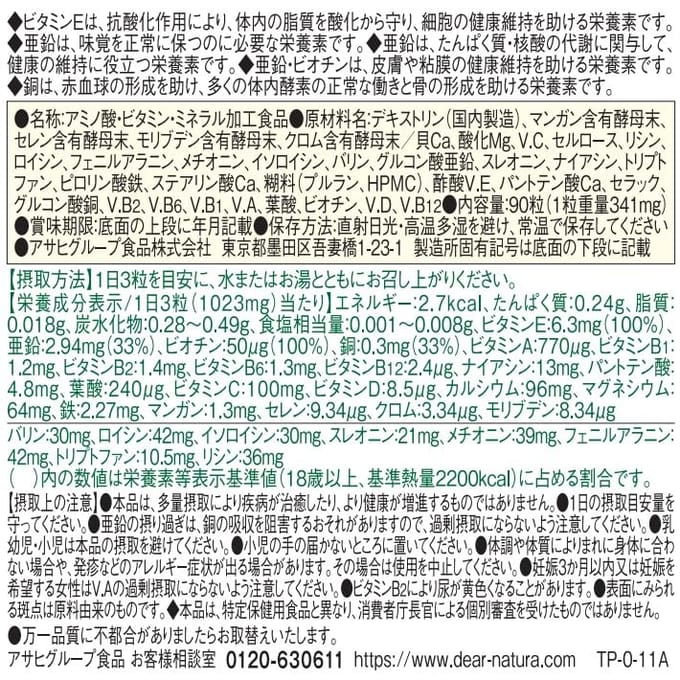 ◆ビタミンEは、抗酸化作用により、体内の脂質を酸化から守り、細胞の健康維持を助ける栄養素です。
◆亜鉛は、味覚を正常に保つのに必要な栄養素です。◆亜鉛は、たんぱく質・核酸の代謝に関与して、
健康の維持に役立つ栄養素です。◆亜鉛・ビオチンは、皮膚や粘膜の健康維持を助ける栄養素です。
◆銅は、赤血球の形成を助け、多くの体内酵素の正常な働きと骨の形成を助ける栄養素です。
●名称:アミノ酸・ビタミン・ミネラル加工食品●原材料名:デキストリン(国内製造)、マンガン含有酵母末、
セレン含有酵母末、モリブデン含有酵母末、クロム含有酵母末/貝Ca、酸化Mg、V.C、セルロース、リシン、
ロイシン、フェニルアラニン、メチオニン、イソロイシン、バリン、グルコン酸亜鉛、スレオニン、ナイアシン、トリプト
ファン、ピロリン酸鉄、ステアリン酸Ca、糊料(プルラン、HPMC)、酢酸V.E、パントテン酸Ca、セラック、
グルコン酸銅、V.B2、V.B6、V.B1、V.A、葉酸、ビオチン、V.D、V.B12●内容量:90粒(1粒重量341mg)
●賞味期限:底面の上段に年月記載●保存方法:直射日光・高温多湿を避け、常温で保存してください
●アサヒグループ食品株式会社 東京都墨田区吾妻橋1-23-1 製造所固有記号は底面の下段に記載
【摂取方法】1日3粒を目安に、水またはお湯とともにお召し上がりください。
【栄養成分表示/1日3粒(1023mg)当たり】エネルギー:2.7kcal、たんぱく質:0.24g、脂質:
0.018g、炭水化物:0.28〜0.49g、食塩相当量:0.001〜0.008g、ビタミンE:6.3mg(100%)、
亜鉛:2.94mg(33%)、ビオチン:50μg(100%)、銅:0.3mg(33%)、ビタミンA:770μg、ビタミンB1:
1.2mg、ビタミンB2:1.4mg、ビタミンB6:1.3mg、ビタミンB12:2.4μg、ナイアシン:13mg、パントテン酸:
4.8mg、葉酸:240μg、ビタミンC:100mg、ビタミンD:8.5μg、カルシウム:96mg、マグネシウム:
64mg、鉄:2.27mg、マンガン:1.3mg、セレン:9.34μg、クロム:3.34μg、モリブデン:8.34μg
バリン:30mg、ロイシン:42mg、イソロイシン:30mg、スレオニン:21mg、メチオニン:39mg、フェニルアラニン:
42mg、トリプトファン:10.5mg、リシン:36mg
( )内の数値は栄養素等表示基準値(18歳以上、基準熱量2200kcal)に占める割合です。
【摂取上の注意】●本品は、多量摂取により疾病が治癒したり、より健康が増進するものではありません。●1日の摂取目安量を
守ってください。●亜鉛の摂り過ぎは、銅の吸収を阻害するおそれがありますので、過剰摂取にならないよう注意してください。●乳
幼児・小児は本品の摂取を避けてください。●小児の手の届かないところに置いてください。●体調や体質によりまれに身体に合わ
ない場合や、発疹などのアレルギー症状が出る場合があります。その場合は使用を中止してください。●妊娠3か月以内又は妊娠を
希望する女性はV.Aの過剰摂取にならないよう注意してください。●ビタミンB2により尿が黄色くなることがあります。●表面にみられ
る斑点は原料由来のものです。◆本品は、特定保健用食品と異なり、消費者庁長官による個別審査を受けたものではありません。
●万一品質に不都合がありましたらお取替えいたします。
アサヒグループ食品 お客様相談室 0120-630611 https://www.dear-natura.com TP-0-11A